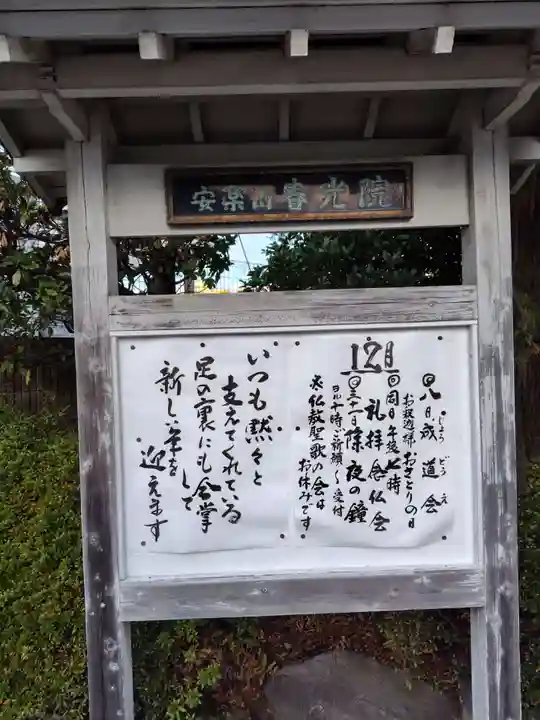 安楽山春光院
12月
㊐八日成道会
じょうどうえ
お釈迦様おさとりの日
㊐同日午後七時
礼拝念仏会
㊐三十一日除夜の鐘
ヨル十一時ご祈願く受付
仏教聖歌の会は
お休みです
いつも黙々と
支えてくれている
足の裏にも合掌
して
新しい年を
迎えます